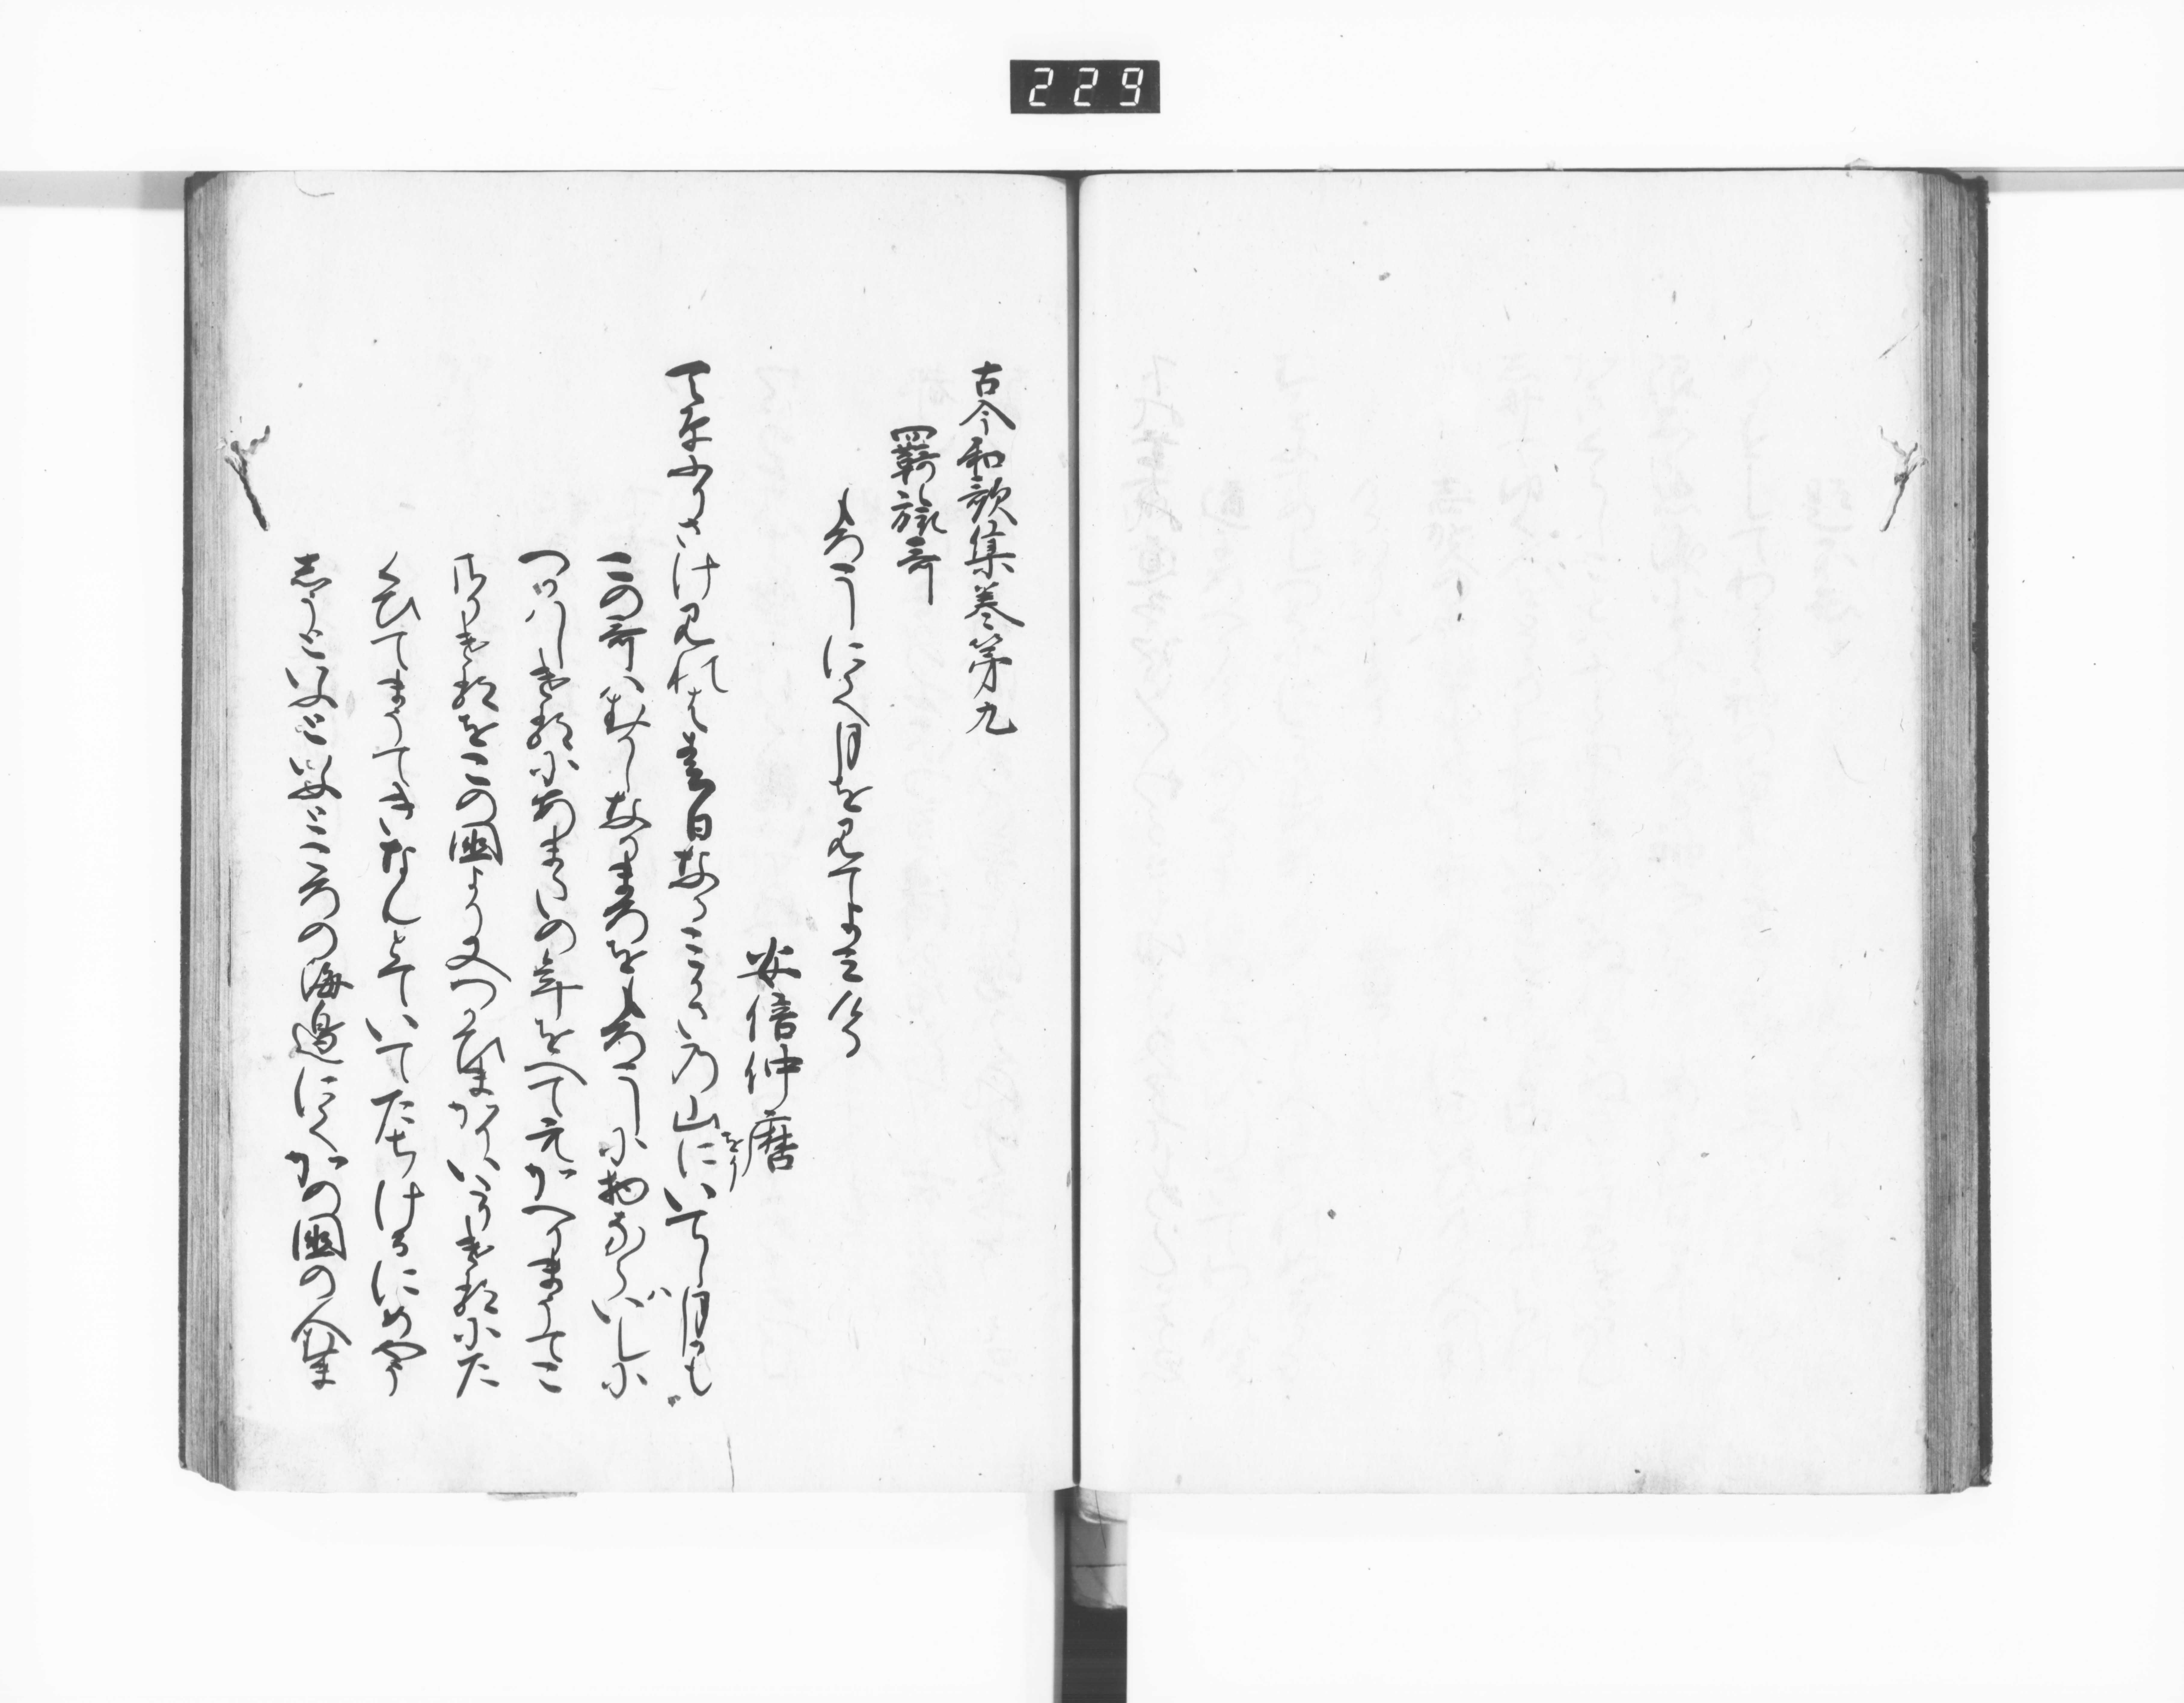 229
古今和歌集巻第九
羇旅哥
もろこしにて月を見てよみける
安倍仲麿
天原ふりさけ見れは春日なるみかさの山にいてし月かも
をり
この哥はむかしなかまろをもろこしに物ならはしに
つかはしたりけるにあまたの年をへて元かへりまうてこ
さりけるをこの國より又つかひまかりいたりけるにた
くひてまうてきなんとていてたちけるにめいし
うといふところの海邊にてかの國の人むま